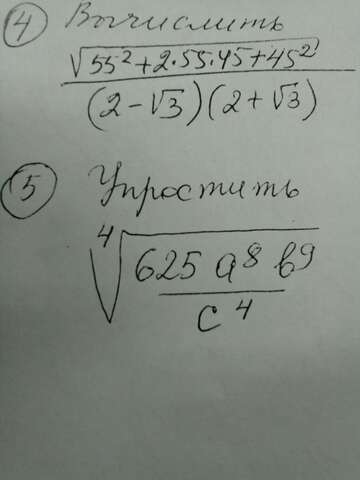 ④ Вычислить
√(55² + 2·55·45 + 45²)
(2 - √3)(2 + √3)
⑤ Упростить
⁴√(625 a⁸ b⁹
c⁴)